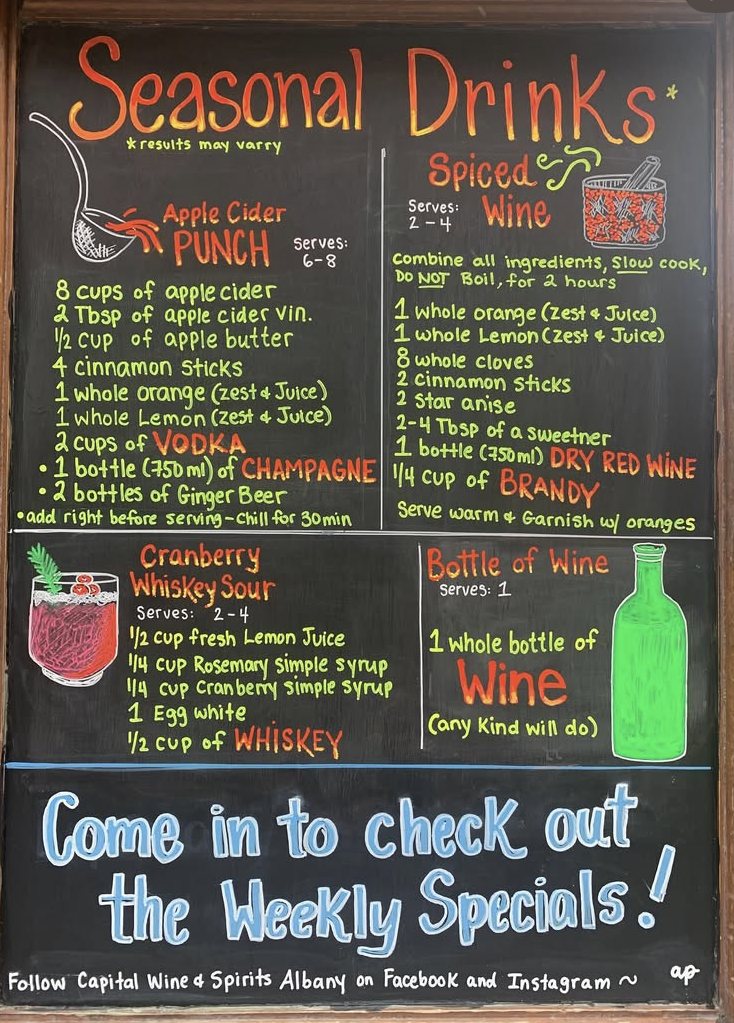 Seasonal Drinks*
*results may varry
Apple Cider
PUNCH
Serves:
6-8
8 cups of apple cider
2 Tbsp of apple cider vin.
1/2 cup of apple butter
4 cinnamon sticks
1 whole orange (zest & Juice)
1 whole Lemon (zest & Juice)
2 cups of VODKA
• 1 bottle (750 ml) of CHAMPAGNE
• 2 bottles of Ginger Beer
•add right before serving-Chill for 30min
Spiced
Wine
Serves:
2-4
Combine all ingredients, Slow cook,
Do NOT Boil, for 2 hours
1 whole orange (zest & Juice)
1 whole Lemon (zest & Juice)
8 whole cloves
2 cinnamon sticks
2 Star anise
2-4 Tbsp of a sweetner
1 bottle (750ml) DRY RED WINE
1/4 cup of BRANDY
Serve warm & Garnish w/ oranges
Cranberry
Whiskey Sour
Serves: 2-4
1/2 cup fresh Lemon Juice
1/4 cup Rosemary simple syrup
1/4 cup Cranberry simple syrup
1 Egg white
1/2 cup of WHISKEY
Bottle of Wine
Serves: 1
1 whole bottle of
Wine
(any Kind will do)
Come in to check out
the Weekly Specials!
Follow Capital Wine & Spirits Albany on Facebook and Instagram ~
ap